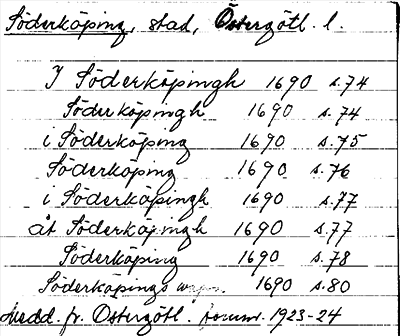 Söderköping, stad, Östergötl. l.
I Söderköpingh 1690 s. 74
Söderköpingh 1690 s. 74
i Söderköping 1690 s. 75
Söderköping 1690 s. 76
i Söderköpingh 1690 s. 77
åt Söderköpingh 1690 s. 77
Söderköping 1690 s. 78
Söderköpings 1690 s. 80
Medd. fr. Östergötl. fornm. 1923-24